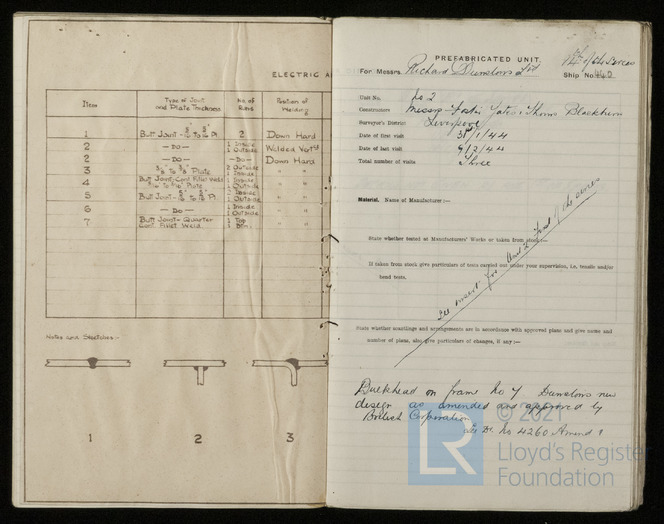 ELECTRIC A
Item
Type of Joint and Plate Thickness
No. of Runs
Position of Welding
1 Butt Joint - 2 Down Hard
2 - Do - 1 Inside 1 Outside Welded Vert
2 - Do - - Do - Down Hard
3 Plate 2 Outside 1 Inside " "
4 Butt Joint, Cont. Fillet Weld Plate 1 Inside 1 Outside " "
5 Butt Joint Pl. 1 Inside 1 Outside " "
6 - Do - 1 Inside 1 Outside " "
7 Butt Joint - Quarter Cont. Fillet Weld. 1 Top 1 Btm. " "
Notes and Sketches:-
1 2 3
PREFABRICATED UNIT.
For Messrs. Richard Dunstons Ltd Ship No. 440
Unit No. No 2
Constructors Messrs Foster Yates & Thoms Blackburn
Surveyor's District Liverpool
Date of first visit 31/1/44
Date of last visit 9/2/44
Total number of visits Three
Material. Name of Manufacturer:-
State whether tested at Manufacturers' Works or taken from stock:-
If taken from stock give particulars of tests carried out under your supervision, i.e. tensile and/or
bend tests.
See insert for Unit 2 of the series
State whether scantlings and arrangements are in accordance with approved plans and give name and
number of plans, also give particulars of changes, if any:-
Bulkhead on frame No 7 Dunstons new
design as amended and approved by
British Corporation
No 4260 Amend
© 2021
LR
Lloyd's Register
Foundation